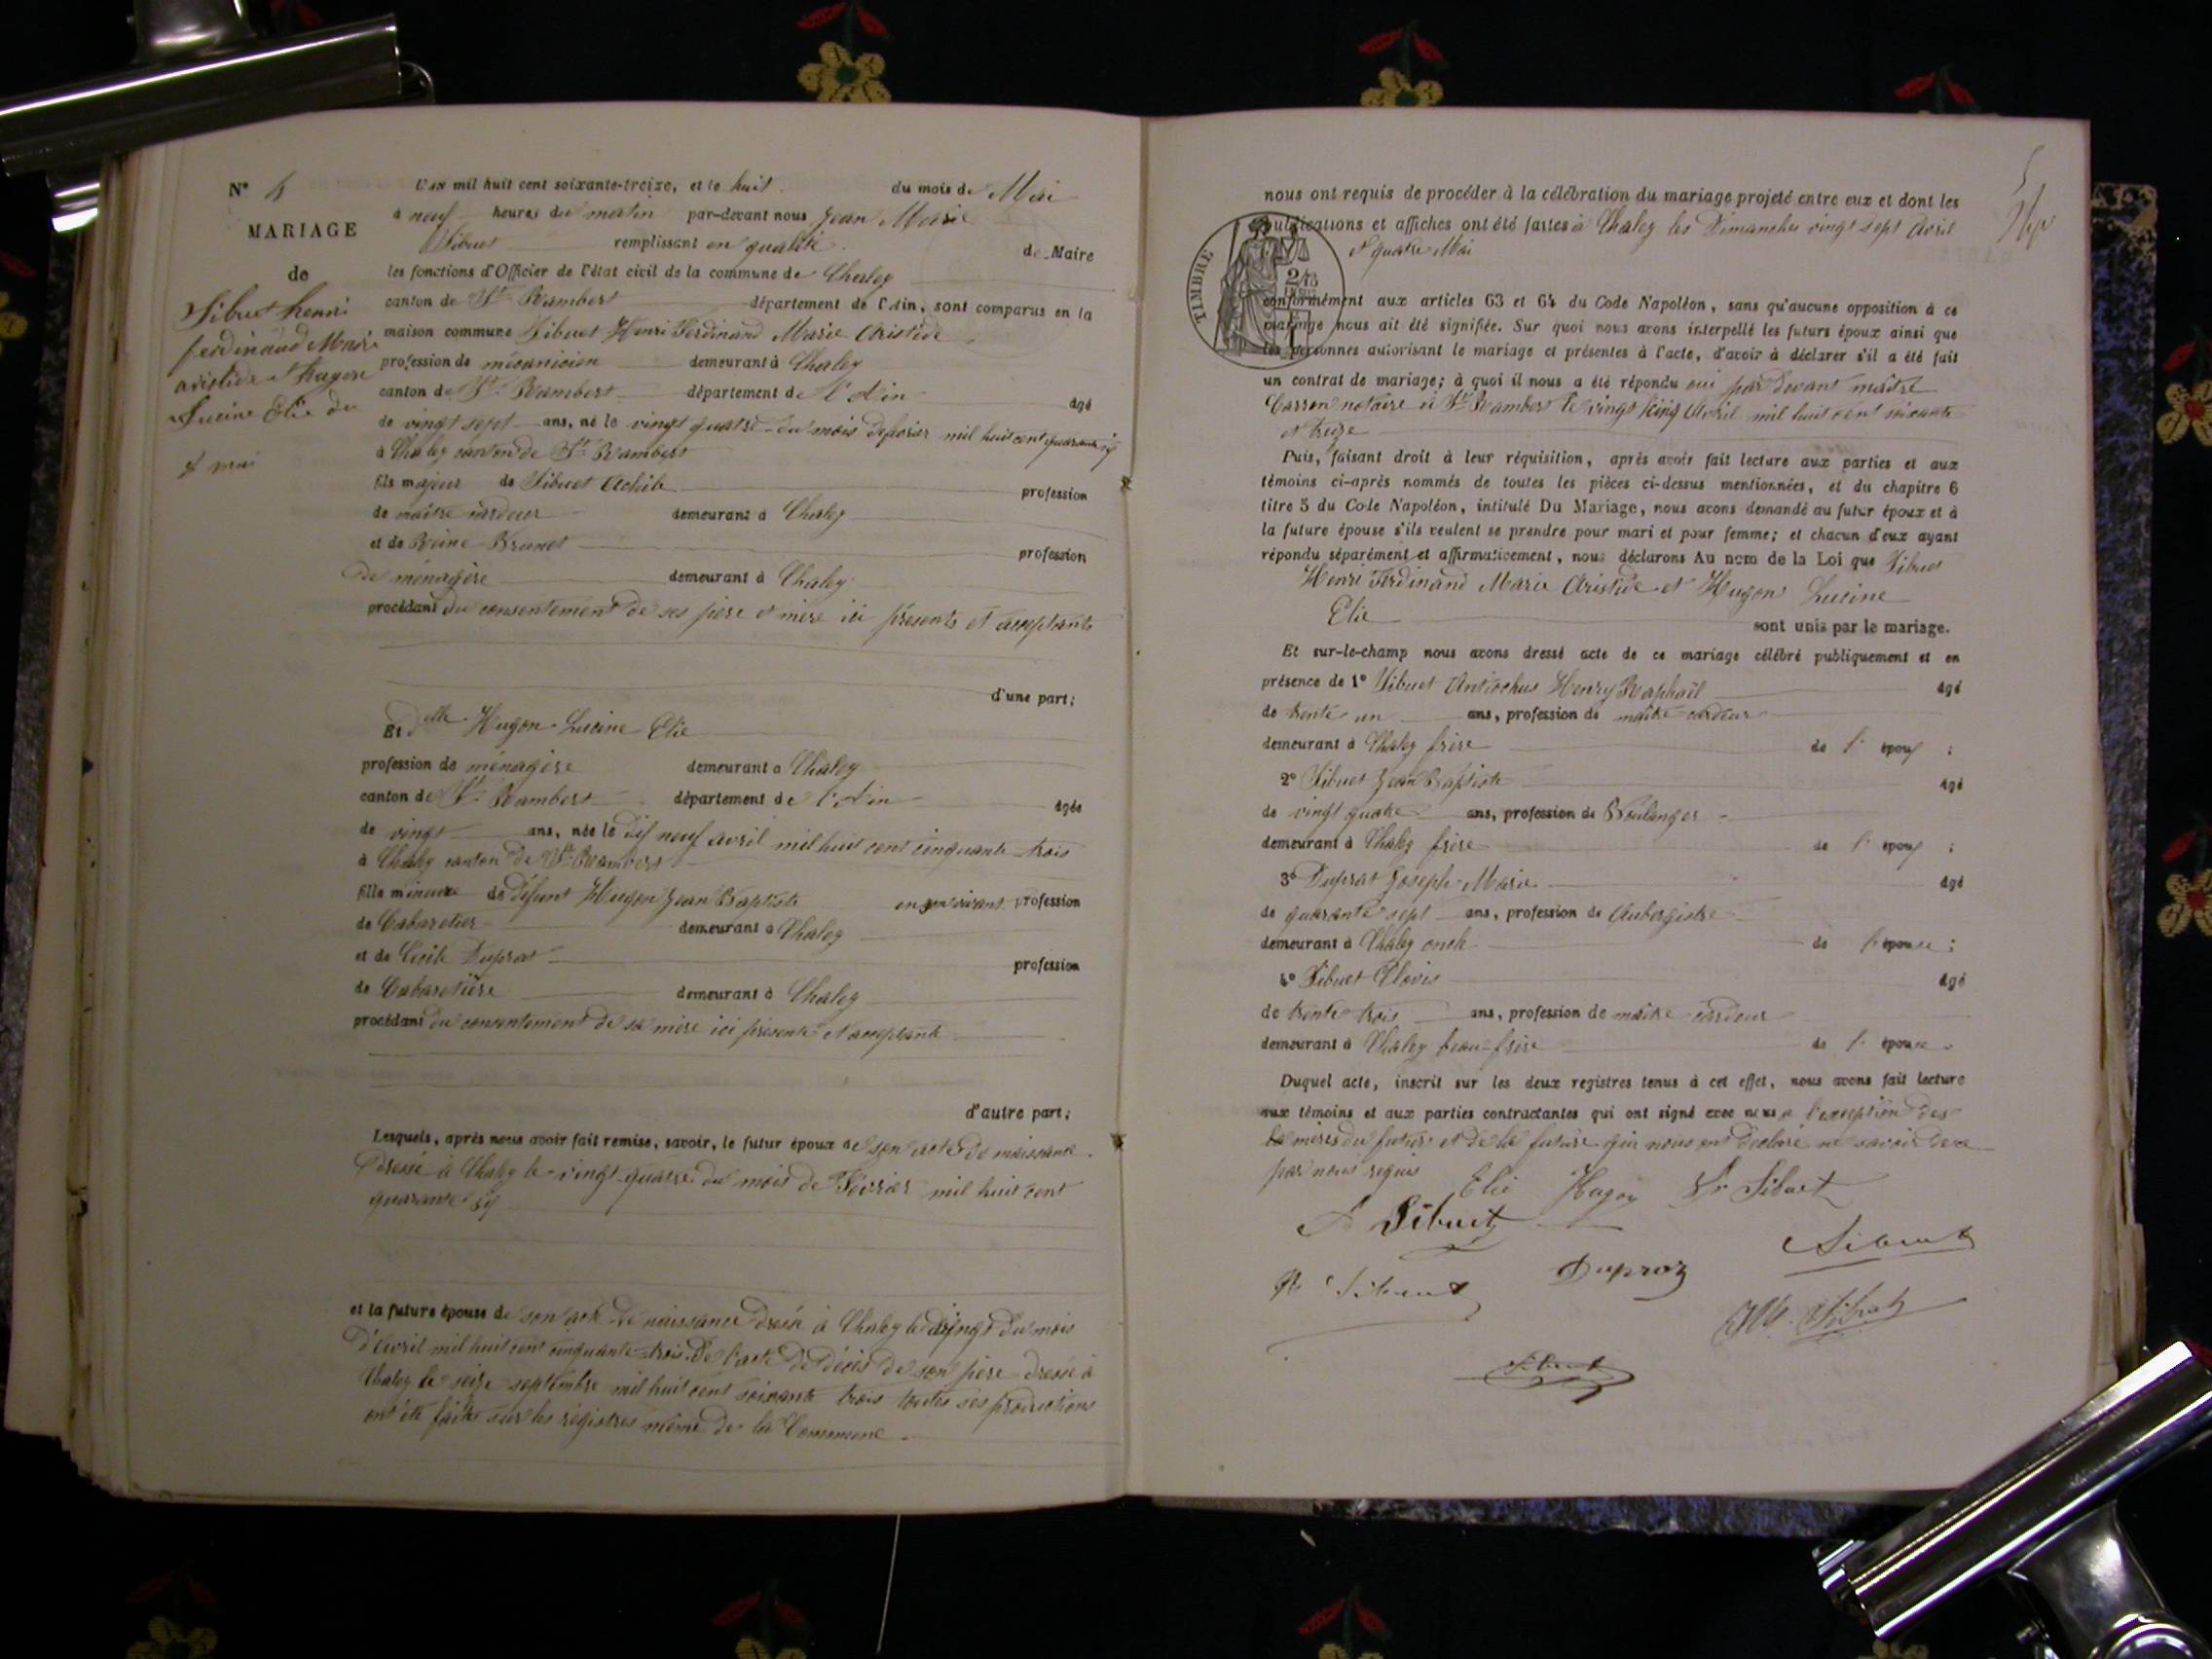 N° 4
MARIAGE
de
Sibuet henri
ferdinand Marie
aristide et hugon
Lucine Elie du
8 mai
L'an mil huit cent soixante-treize, et le huit du mois de Mai
à neuf heures du matin par-devant nous Jean Marie
Sibuet remplissant en qualité de Maire
les fonctions d'Officier de l'état civil de la commune de Chaley
canton de St Rambert département de l'Ain, sont comparus en la
maison commune Sibuet Henri Ferdinand Marie Aristide
profession de mécanicien demeurant à Chaley
canton de St Rambert département de l'Ain âgé
de vingt sept ans, né le vingt quatre du mois de février mil huit cent quarante six
à Chaley canton de St Rambert
fils majeur de Sibuet Achile profession
de maître cardeur demeurant à Chaley
et de Reine Brunet profession
de ménagère demeurant à Chaley
procédant du consentement de ses père et mère ici présents et acceptants
d'une part;
Et delle Hugon Lucine Elie
profession de ménagère demeurant à Chaley
canton de St Rambert département de l'Ain âgée
de vingt ans, née le dix neuf avril mil huit cent cinquante trois
à Chaley canton de St Rambert
fille mineure de défunt Hugon Jean Baptiste en son vivant profession
de Cabaretier demeurant à Chaley
et de Cécile Duprat profession
de Cabaretière demeurant à Chaley
procédant du consentement de sa mère ici présente et acceptante
d'autre part;
Lesquels, après nous avoir fait remise, savoir, le futur époux de son acte de naissance
dressé à Chaley le vingt quatre du mois de Février mil huit cent
quarante six
et la future épouse de son acte de naissance dressé à Chaley le vingt du mois
d'avril mil huit cent cinquante trois. De l'acte de décès de son père dressé à
Chaley le seize septembre mil huit cent soixante trois toutes ses productions
ont été faites sur les régistres même de la Commune.
5
nous ont requis de procéder à la célébration du mariage projeté entre eux et dont les
publications et affiches ont été faites à Chaley les Dimanches vingt sept Avril
et quatre Mai
TIMBRE
conformément aux articles 63 et 64 du Code Napoléon, sans qu'aucune opposition à ce
mariage nous ait été signifiée. Sur quoi nous avons interpellé les futurs époux ainsi que
les personnes autorisant le mariage et présentes à l'acte, d'avoir à déclarer s'il a été fait
un contrat de mariage; à quoi il nous a été répondu oui par devant maître
Carron notaire à St Rambert le vingt cinq Avril mil huit cent soixante
et treize
Puis, faisant droit à leur réquisition, après avoir fait lecture aux parties et aux
témoins ci-après nommés de toutes les pièces ci-dessus mentionnées, et du chapitre 6
titre 5 du Code Napoléon, intitulé Du Mariage, nous avons demandé au futur époux et à
la future épouse s'ils veulent se prendre pour mari et pour femme; et chacun d'eux ayant
répondu séparément et affirmativement, nous déclarons Au nom de la Loi que Sibuet
Henri Ferdinand Marie Aristide et Hugon Lucine
Elie
sont unis par le mariage.
Et sur-le-champ nous avons dressé acte de ce mariage célébré publiquement et en
présence de 1° Sibuet Antiochus Henry Raphaël âgé
de trente un ans, profession de maître cardeur
demeurant à Chaley frère de l'époux ;
2° Sibuet Jean Baptiste âgé
de vingt quatre ans, profession de Boulanger
demeurant à Chaley frère de l'époux ;
3° Duprat Joseph Marie âgé
de quarante sept ans, profession de Aubergiste
demeurant à Chaley oncle de l'épouse ;
4° Sibuet Clovis âgé
de trente trois ans, profession de maître cardeur
demeurant à Chaley beau-frère de l'épouse
Duquel acte, inscrit sur les deux registres tenus à cet effet, nous avons fait lecture
aux témoins et aux parties contractantes qui ont signé avec nous à l'exception des
mères du futur et de la future qui nous ont déclaré ne savoir de ce
par nous requis
Elie Hugon Sibuet
A Sibuet
Sibuet
Sibuet Duproz
JM. Sibuet
Sibuet